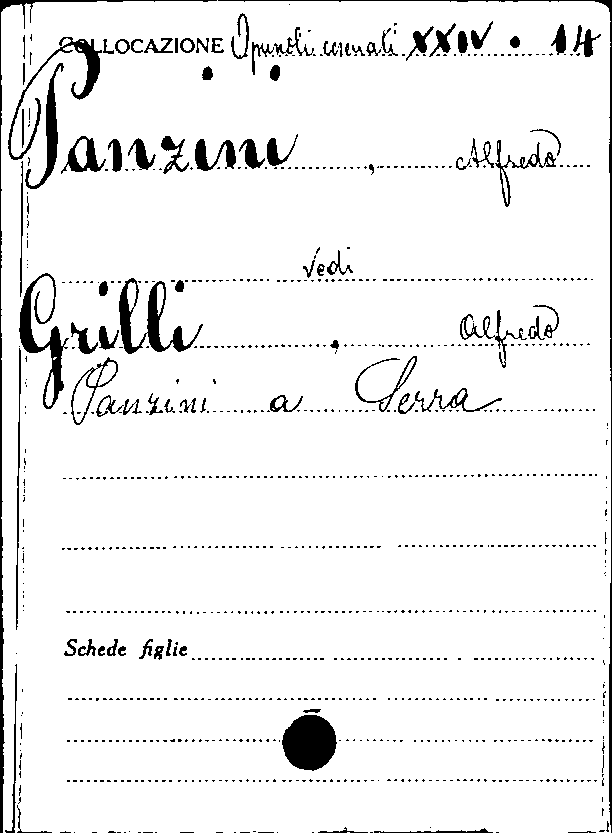 COLLOCAZIONE Opuscoli cesenati XXIV . 14
Panzini , Alfredo
vedi
Grilli , Alfredo
Panzini a Serra
Schede figlie